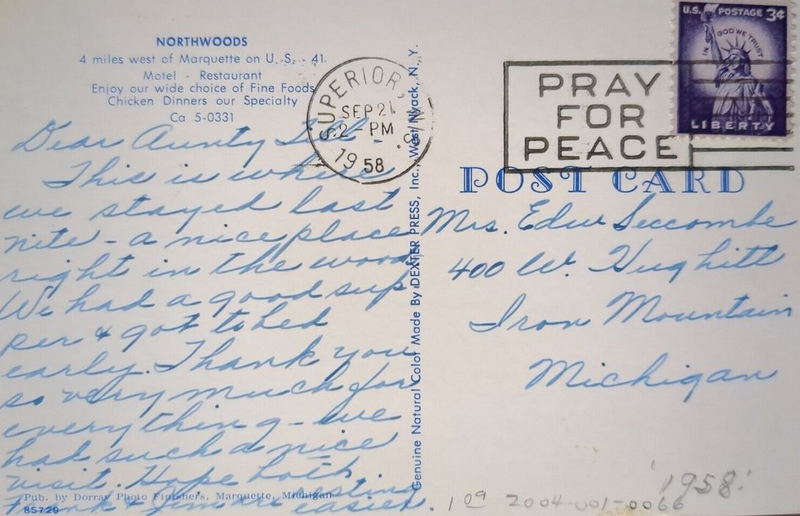 NORTHWOODS
4 miles west of Marquette on U. S. - 41
Motel - Restaurant
Enjoy our wide choice of Fine Foods
Chicken Dinners our Specialty
Ca 5-0331
Dear Aunty
This is where
we stayed last
nite - a nice place
right in the woods
We had a good sup
per & got to bed
early. Thank you
so very much for
everything - we
had such a nice
visit. Hope both
Frank & Jim are resting
easier.
Pub. by Dorray Photo Finishers, Marquette, Michigan
85729
Genuine Natural Color Made By DEXTER PRESS, Inc., West Nyack, N. Y.
SUPERIOR, WIS.
SEP 21
2 - PM
1958
PRAY
FOR
PEACE
U.S. POSTAGE 3¢
IN GOD WE TRUST
LIBERTY
POST CARD
Mrs. Edw Seccombe
400 W. Hughitt
Iron Mountain
Michigan
'1958'
2004-001-0066